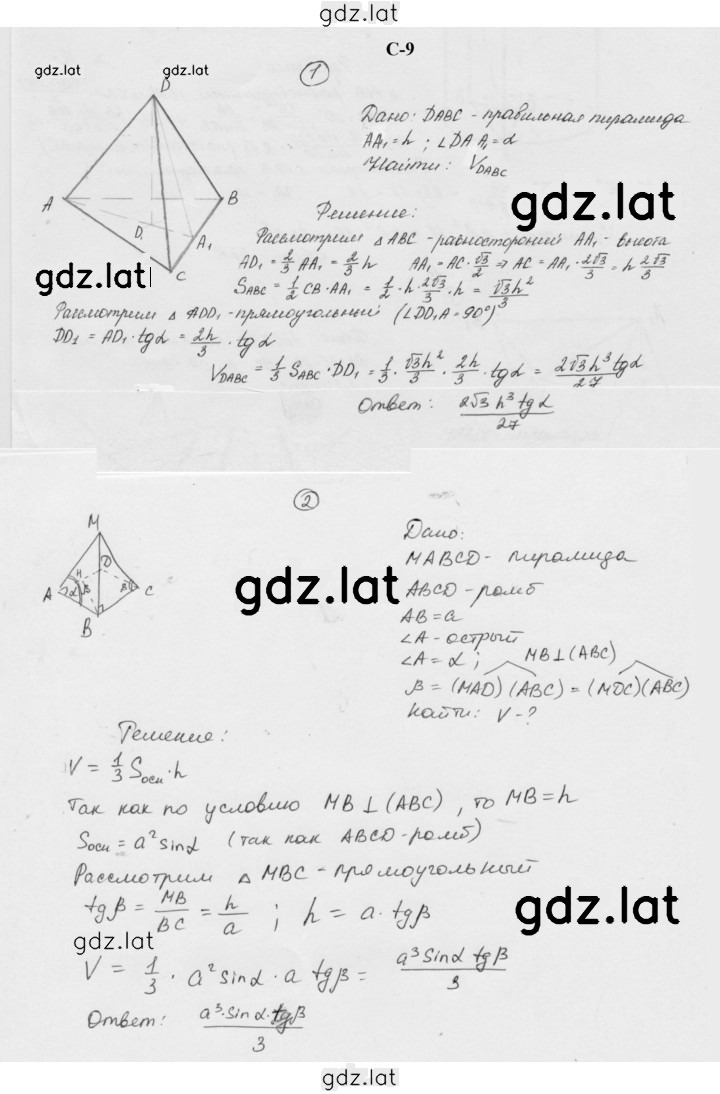 gdz.lat
С-9
gdz.lat
gdz.lat
1
D
A
B
D₁
A₁
C
gdz.lat
Дано: DABC - правильная пирамида
AA₁ = h ; ∠DAA₁ = α
Найти: V_DABC
gdz.lat
Решение:
Рассмотрим △ABC - равносторонний AA₁ - высота
AD₁ = 2/3 AA₁ = 2/3 h AA₁ = AC · √3/2 ⇒ AC = AA₁ · 2√3/3 = h 2√3/3
S_ABC = 1/2 CB · AA₁ = 1/2 · h · 2√3/3 · h = √3h²/3
Рассмотрим △ ADD₁ - прямоугольный (∠DD₁A = 90°)
DD₁ = AD₁ · tgα = 2h/3 · tgα
V_DABC = 1/3 S_ABC · DD₁ = 1/3 · √3h²/3 · 2h/3 · tgα = 2√3h³tgα/27
Ответ: 2√3 h³ tgα/27
2
M
H
D
A
α
β
β
C
B
gdz.lat
Дано:
MABCD - пирамида
ABCD - ромб
AB = a
∠A - острый
∠A = α ; MB ⊥ (ABC)
β = (MAD)(ABC) = (MDC)(ABC)
Найти: V - ?
Решение:
V = 1/3 Sосн · h
Так как по условию MB ⊥ (ABC) , то MB = h
Sосн = a² sinα (так как ABCD - ромб)
Рассмотрим △ MBC - прямоугольный
tgβ = MB/BC = h/a ; h = a · tgβ
gdz.lat
gdz.lat
V = 1/3 · a² sinα · a tgβ = a³ Sinα tgβ/3
Ответ: a³ · Sinα · tgβ/3
gdz.lat